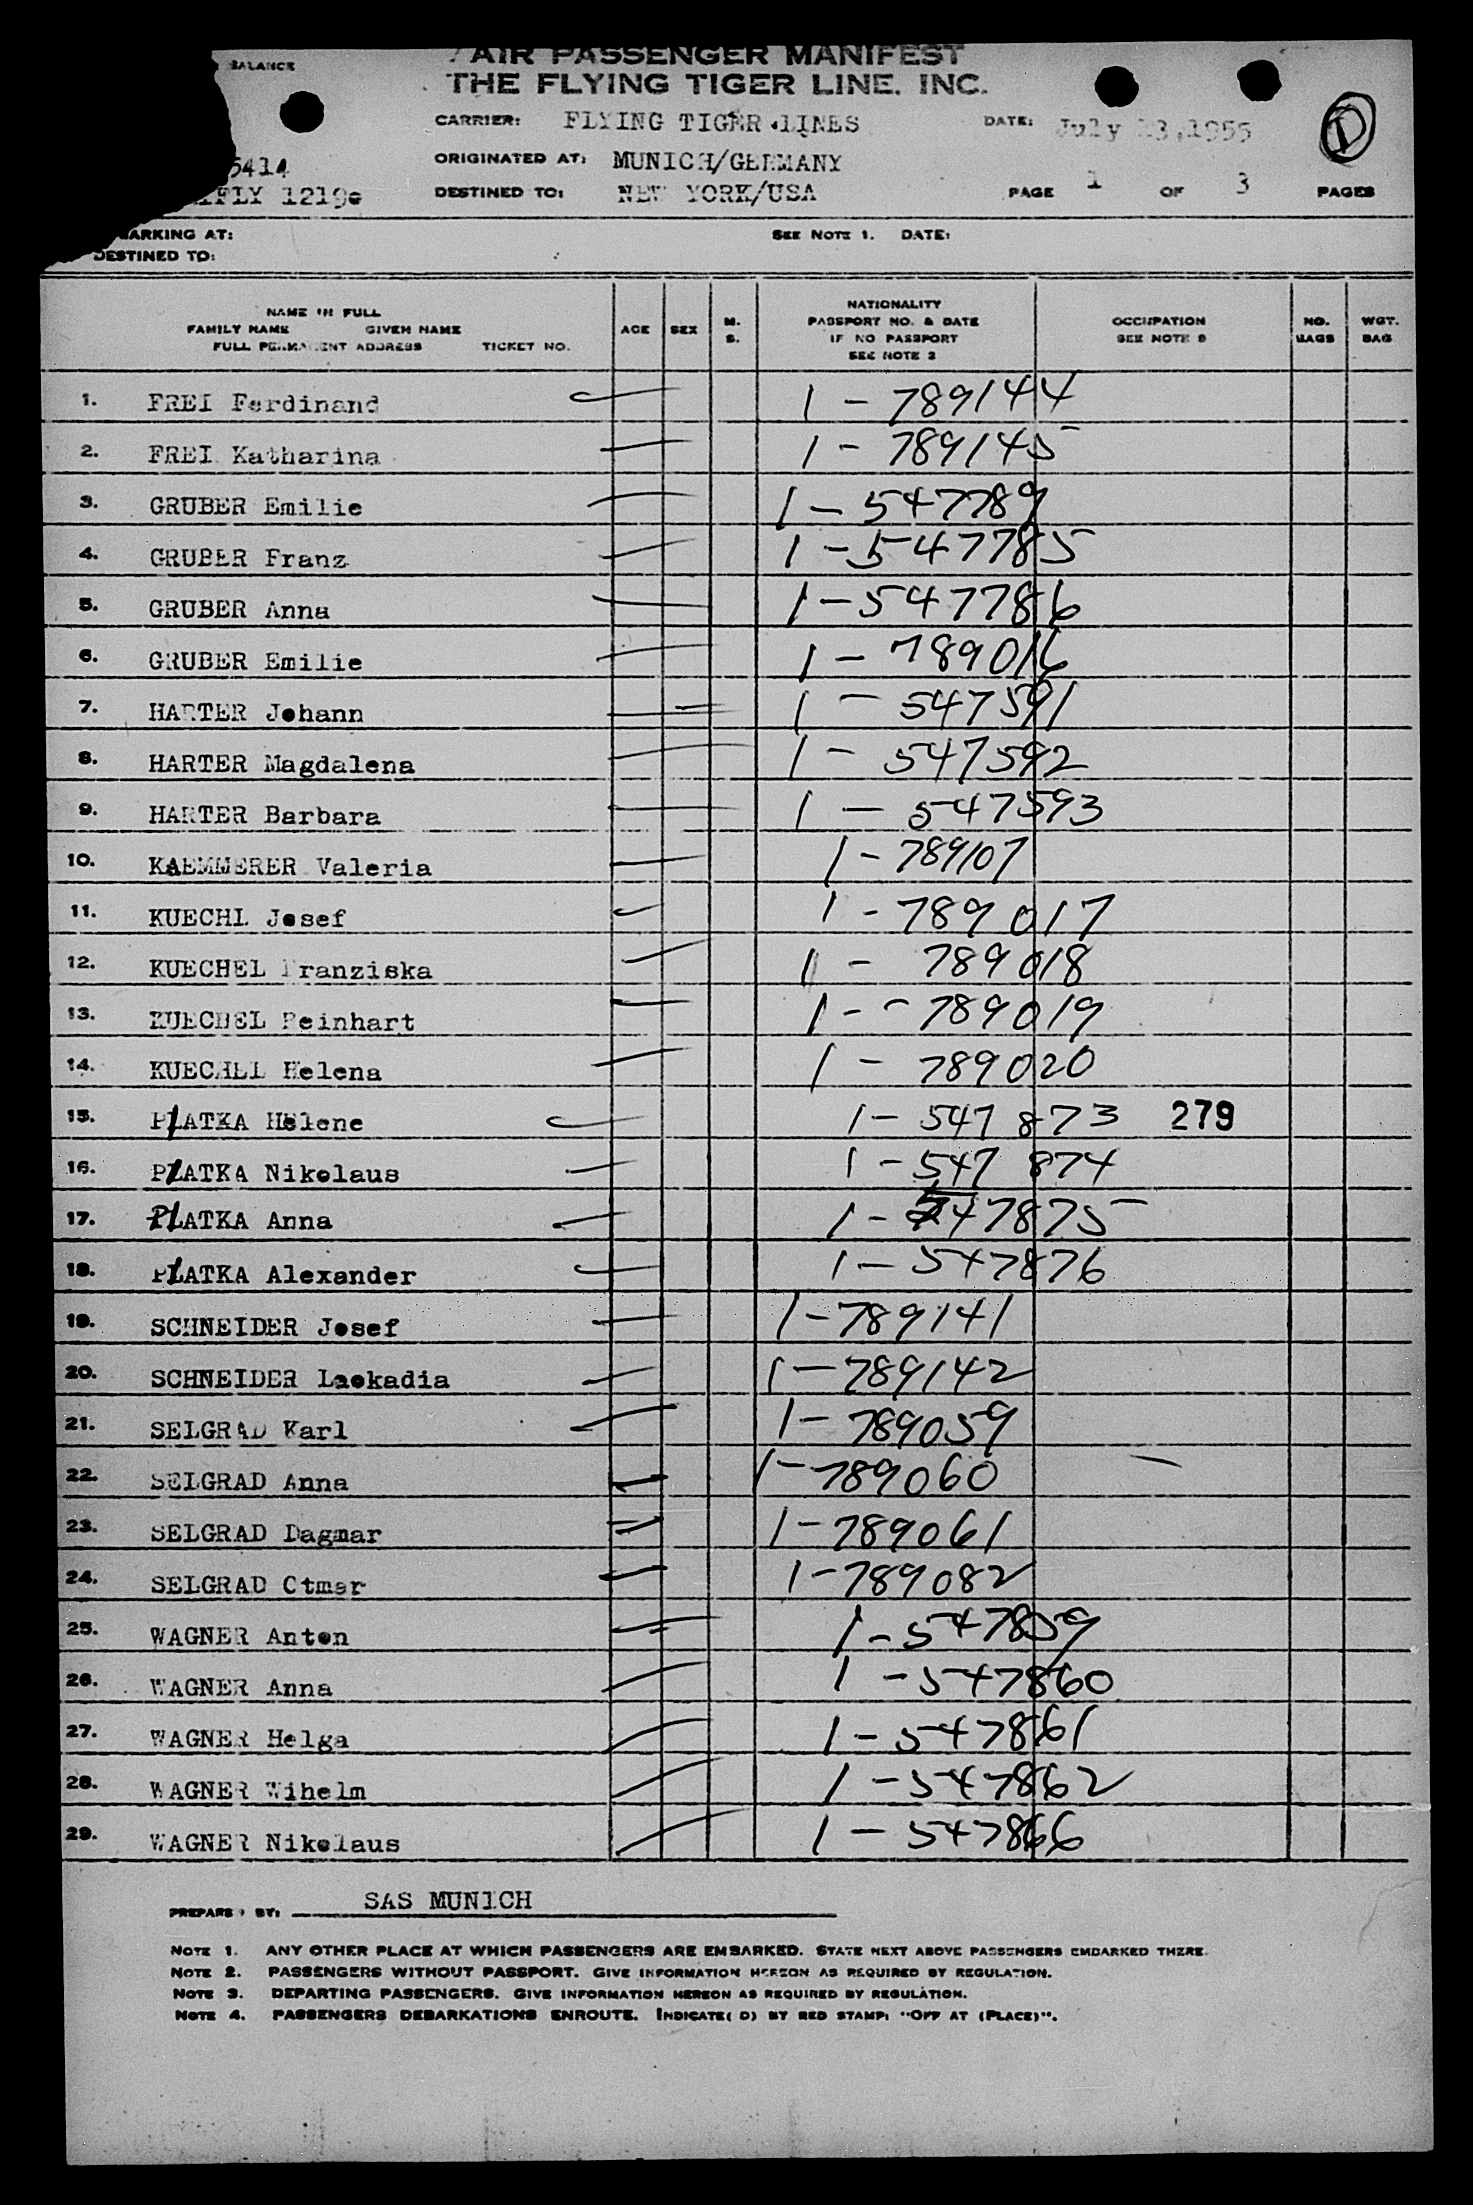 BALANCE
AIR PASSENGER MANIFEST
THE FLYING TIGER LINE. INC.
CARRIER: FLYING TIGER LINES DATE: July 13,1955
D
5414
ORIGINATED AT: MUNICH/GERMANY
FLY 1219e DESTINED TO: NEW YORK/USA PAGE 1 OF 3 PAGES
ARKING AT: SEE NOTE 1. DATE:
DESTINED TO:
NAME IN FULL
FAMILY NAME GIVEN NAME
FULL PERMANENT ADDRESS TICKET NO.
AGE SEX M. S.
NATIONALITY
PASSPORT NO. & DATE
IF NO PASSPORT
SEE NOTE 2
OCCUPATION
SEE NOTE
NO. BAGS
WGT. BAG
1. FREI Ferdinand 1 - 789144
2. FREI Katharina 1 - 789145
3. GRUBER Emilie 1 - 547789
4. GRUBER Franz 1 - 547785
5. GRUBER Anna 1 - 547786
6. GRUBER Emilie 1 - 789016
7. HARTER Johann 1 - 547591
8. HARTER Magdalena 1 - 547592
9. HARTER Barbara 1 - 547593
10. KAEMMERER Valeria 1 - 789107
11. KUECHL Josef 1 - 789017
12. KUECHEL Franziska 1 - 789018
13. KUECHEL Reinhart 1 - - 789019
14. KUECHEL Helena 1 - 789020
15. PLATKA Helene 1 - 547 873 279
16. PLATKA Nikolaus 1 - 547 874
17. PLATKA Anna 1 - 547875
18. PLATKA Alexander 1 - 547876
19. SCHNEIDER Josef 1 - 789141
20. SCHNEIDER Laokadia 1 - 789142
21. SELGRAD Karl 1 - 789059
22. SELGRAD Anna 1 - 789060
23. SELGRAD Dagmar 1 - 789061
24. SELGRAD Otmar 1 - 789082
25. WAGNER Anton 1 - 547859
26. WAGNER Anna 1 - 547860
27. WAGNER Helga 1 - 547861
28. WAGNER Wihelm 1 - 547862
29. WAGNER Nikolaus 1 - 547866
PREPARED BY: SAS MUNICH
NOTE 1. ANY OTHER PLACE AT WHICH PASSENGERS ARE EMBARKED. STATE NEXT ABOVE PASSENGERS EMBARKED THERE.
NOTE 2. PASSENGERS WITHOUT PASSPORT. GIVE INFORMATION HEREON AS REQUIRED BY REGULATION.
NOTE 3. DEPARTING PASSENGERS. GIVE INFORMATION HEREON AS REQUIRED BY REGULATION.
NOTE 4. PASSENGERS DEBARKATIONS ENROUTE. INDICATE( D) BY RED STAMP: "OFF AT (PLACE)".